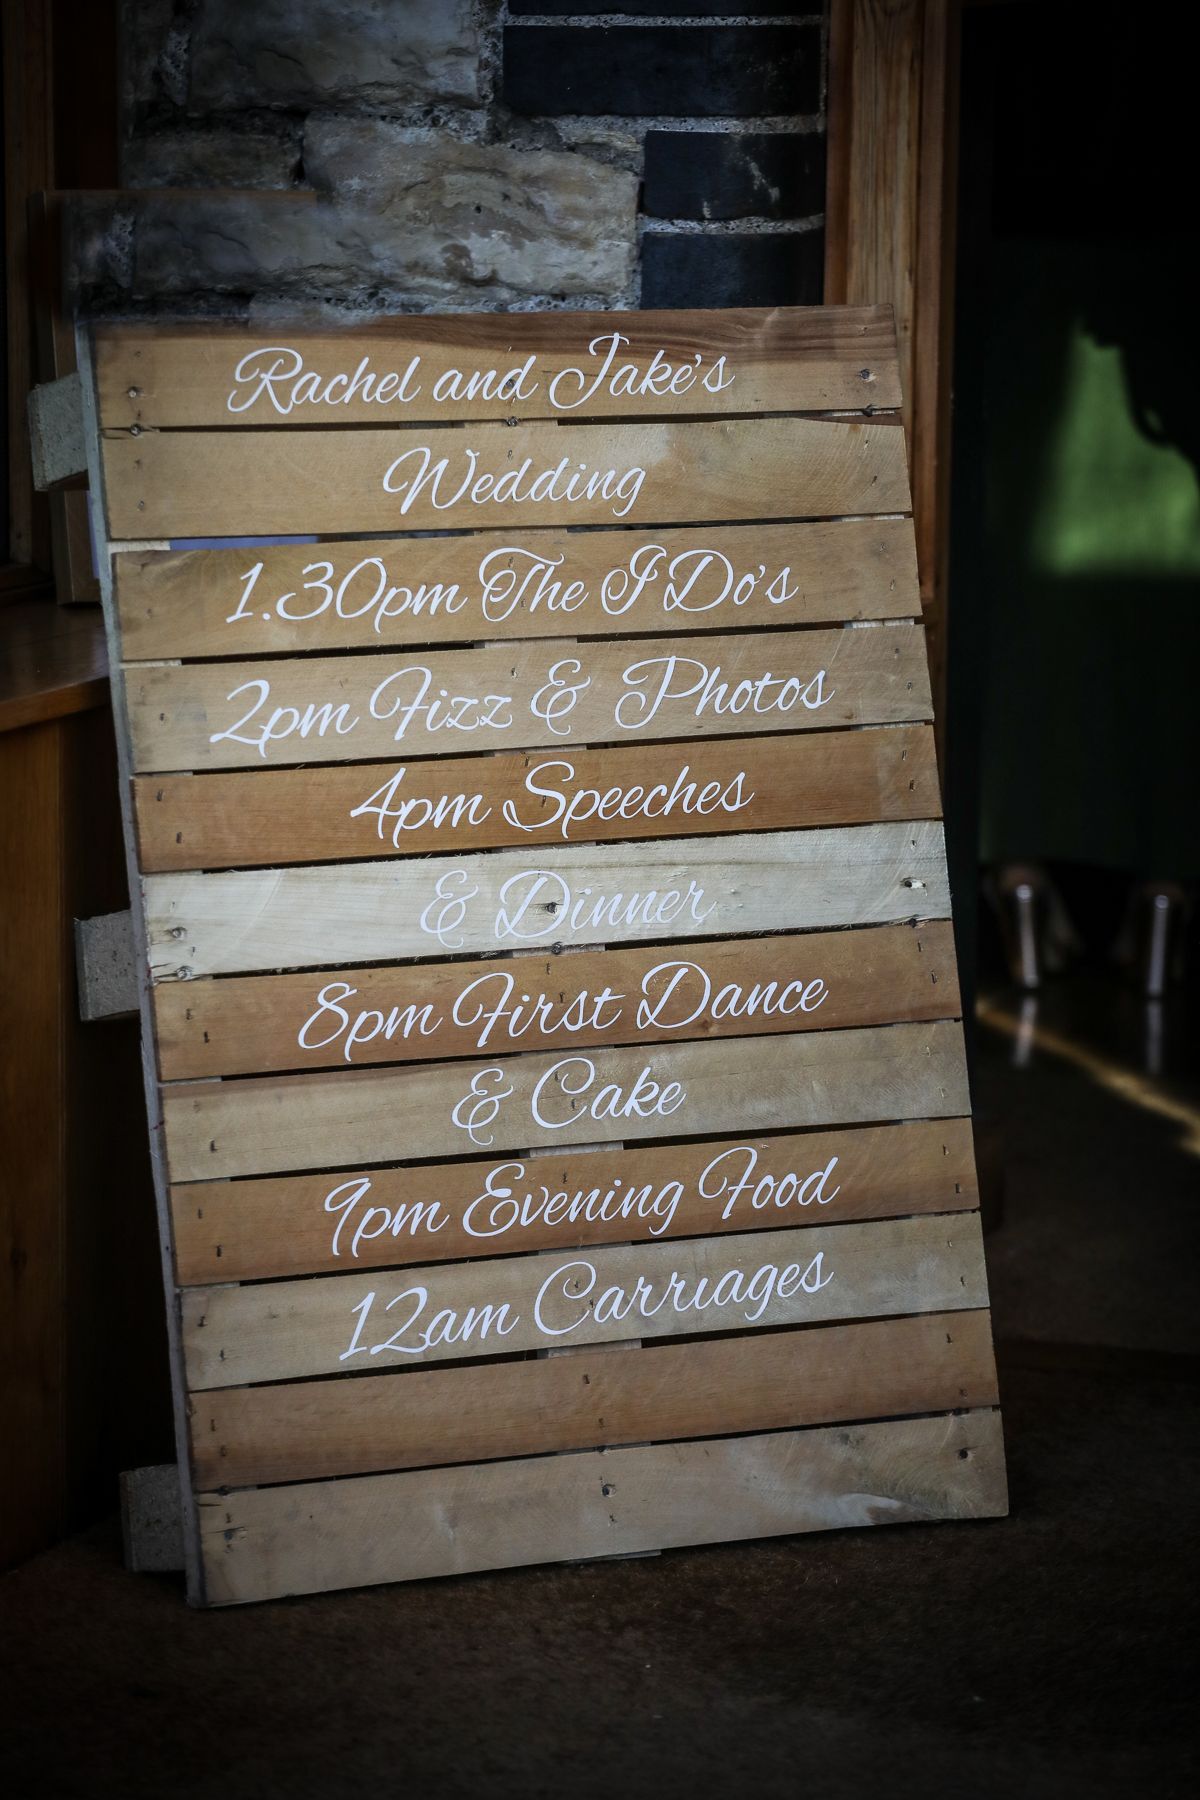 Rachel and Jake's
Wedding
1.30pm The I Do's
2pm Fizz & Photos
4pm Speeches
& Dinner
8pm First Dance
& Cake
9pm Evening Food
12am Carriages